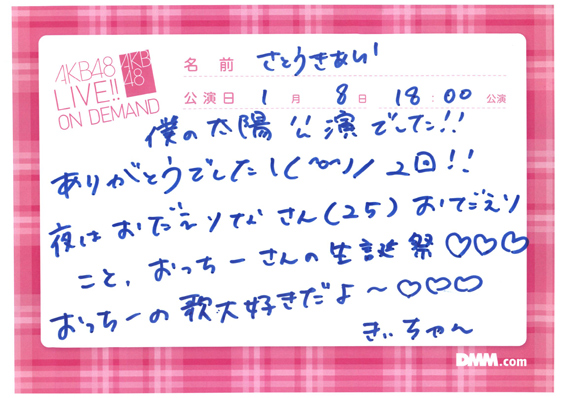 AKB48
LIVE!!
ON DEMAND
AKB
48
名前 さとうきあい
公演日 1月 8日 18:00 公演
僕の太陽公演でした!!
ありがとうでした\(^o^)/ 2回!!
夜はおだえりなさん(25)おだえり
こと、おっちーさんの生誕祭♡♡♡
おっちーの歌大好きだよ〜♡♡♡
きぃちゃん
DMM.com